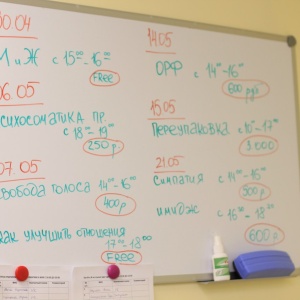 30.04
М и Ж с 15⁰⁰-16⁰⁰
FREE
06.05
психосоматика пр.
с 18⁰⁰-19⁰⁰
250 р
07.05
свобода голоса 14⁰⁰-16⁰⁰
400 р
как улучшить отношения
17⁰⁰-18⁰⁰
FREE
14.05
ОРФ с 14⁰⁰-16⁰⁰
800 руб
15.05
Переупаковка с 10⁰⁰-17⁰⁰
3.000
21.05
симпатия с 14⁰⁰-16⁰⁰
500 р
имидж с 16³⁰-18³⁰
600 р